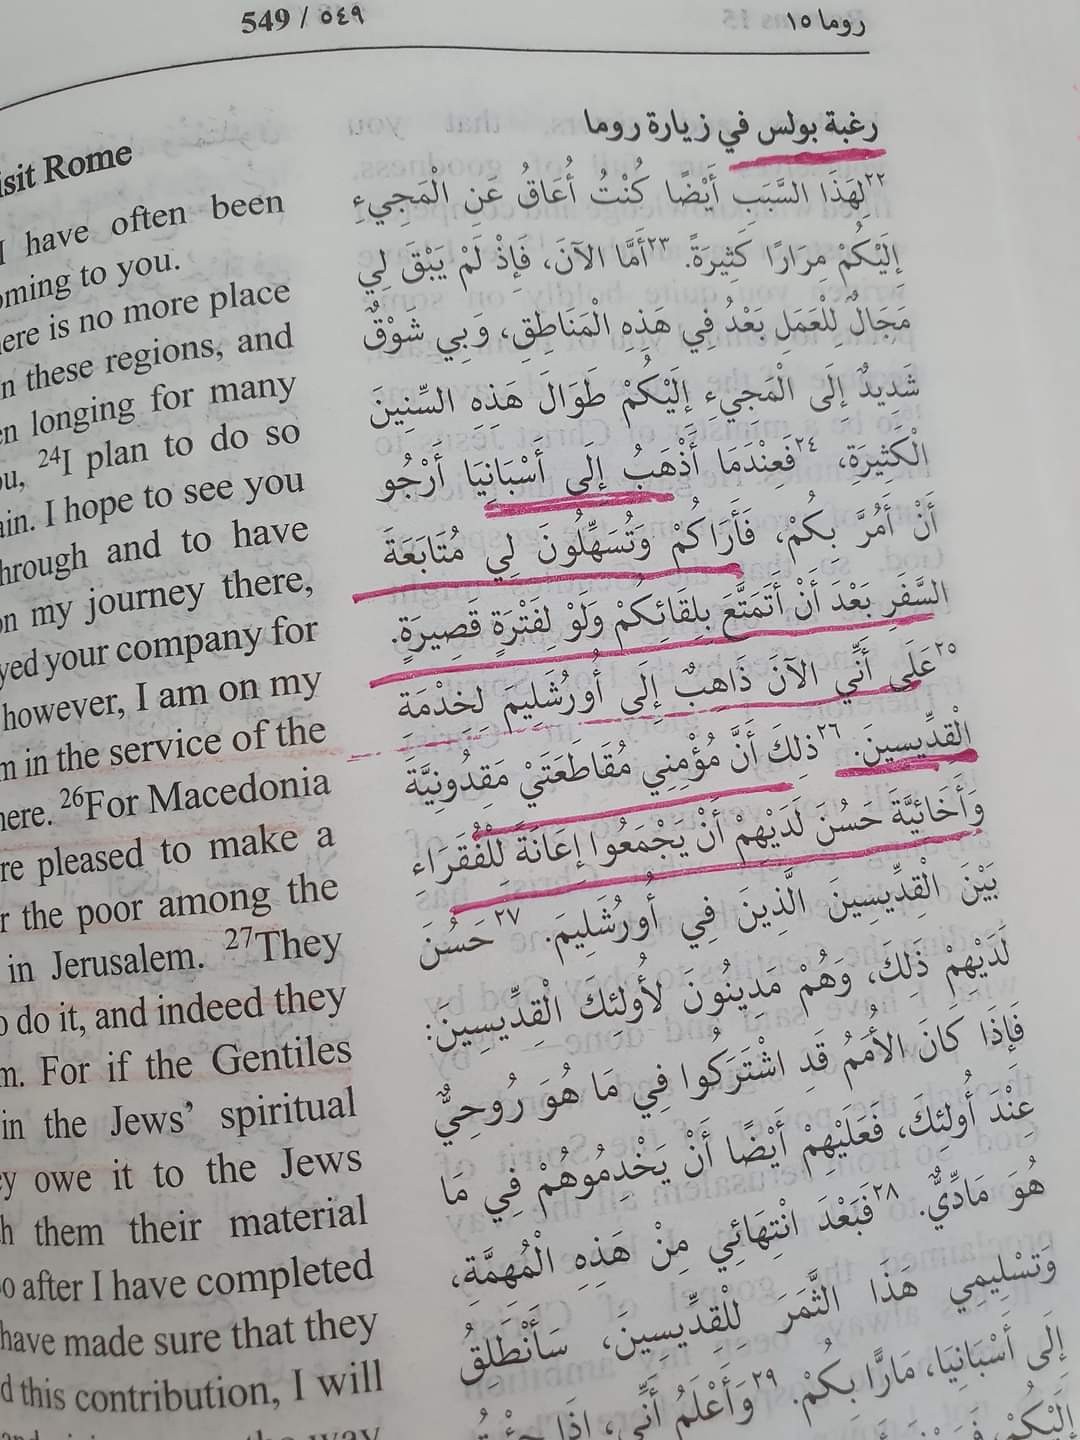 549 / ٥٤٩
روما ١٥
isit Rome
I have often been
oming to you.
ere is no more place
n these regions, and
en longing for many
ou, ²⁴I plan to do so
ain. I hope to see you
hrough and to have
on my journey there,
yed your company for
however, I am on my
m in the service of the
here. ²⁶For Macedonia
re pleased to make a
r the poor among the
in Jerusalem. ²⁷They
o do it, and indeed they
m. For if the Gentiles
in the Jews’ spiritual
ey owe it to the Jews
h them their material
o after I have completed
have made sure that they
d this contribution, I will
the way
رغبة بولس في زيارة روما
٢٢لِهَذَا السَّبَبِ أَيْضًا كُنْتُ أُعَاقُ عَنِ الْمَجِيءِ
إِلَيْكُمْ مِرَارًا كَثِيرَةً. ٢٣أَمَّا الآنَ، فَإِذْ لَمْ يَبْقَ لِي
مَجَالٌ لِلْعَمَلِ بَعْدُ فِي هَذِهِ الْمَنَاطِقِ، وَبِي شَوْقٌ
شَدِيدٌ إِلَى الْمَجِيءِ إِلَيْكُمْ طَوَالَ هَذِهِ السِّنِينَ
الْكَثِيرَةِ، ٢٤فَعِنْدَمَا أَذْهَبُ إِلَى أَسْبَانِيَا أَرْجُو
أَنْ أَمُرَّ بِكُمْ، فَأَرَاكُمْ وَتُسَهِّلُونَ لِي مُتَابَعَةَ
السَّفَرِ بَعْدَ أَنْ أَتَمَتَّعَ بِلِقَائِكُمْ وَلَوْ لِفَتْرَةٍ قَصِيرَةٍ.
٢٥عَلَى أَنِّي الآنَ ذَاهِبٌ إِلَى أُورُشَلِيمَ لخِدْمَةِ
الْقِدِّيسِينَ. ٢٦ذلِكَ أَنَّ مُؤْمِنِي مُقَاطَعَتَيْ مَقِدُونِيَّةَ
وَأَخَائِيَّةَ حَسُنَ لَدَيْهِمْ أَنْ يَجْمَعُوا إِعَانَةً لِلْفُقَرَاءِ
بَيْنَ الْقِدِّيسِينَ الَّذِينَ فِي أُورُشَلِيمَ. ٢٧حَسُنَ
لَدَيْهِمْ ذَلِكَ، وَهُمْ مَدِينُونَ لأُولئِكَ الْقِدِّيسِينَ:
فَإِذَا كَانَ الأُمَمُ قَدِ اشْتَرَكُوا فِي مَا هُوَ رُوحِيٌّ
عِنْدَ أُولئِكَ، فَعَلَيْهِمْ أَيْضًا أَنْ يَخْدِمُوهُمْ فِي مَا
هُوَ مَادِّيٌّ. ٢٨فَبَعْدَ انْتِهَائِي مِنْ هَذِهِ الْمُهِمَّةِ،
وَتَسْلِيمِي هَذَا الثَّمَرَ لِلْقِدِّيسِينَ، سَأَنْطَلِقُ
إِلَى أَسْبَانِيَا، مَارًّا بِكُمْ. ٢٩وَأَعْلَمُ أَنِّي، إِذَا جِئْتُ
إِلَيْكُمْ